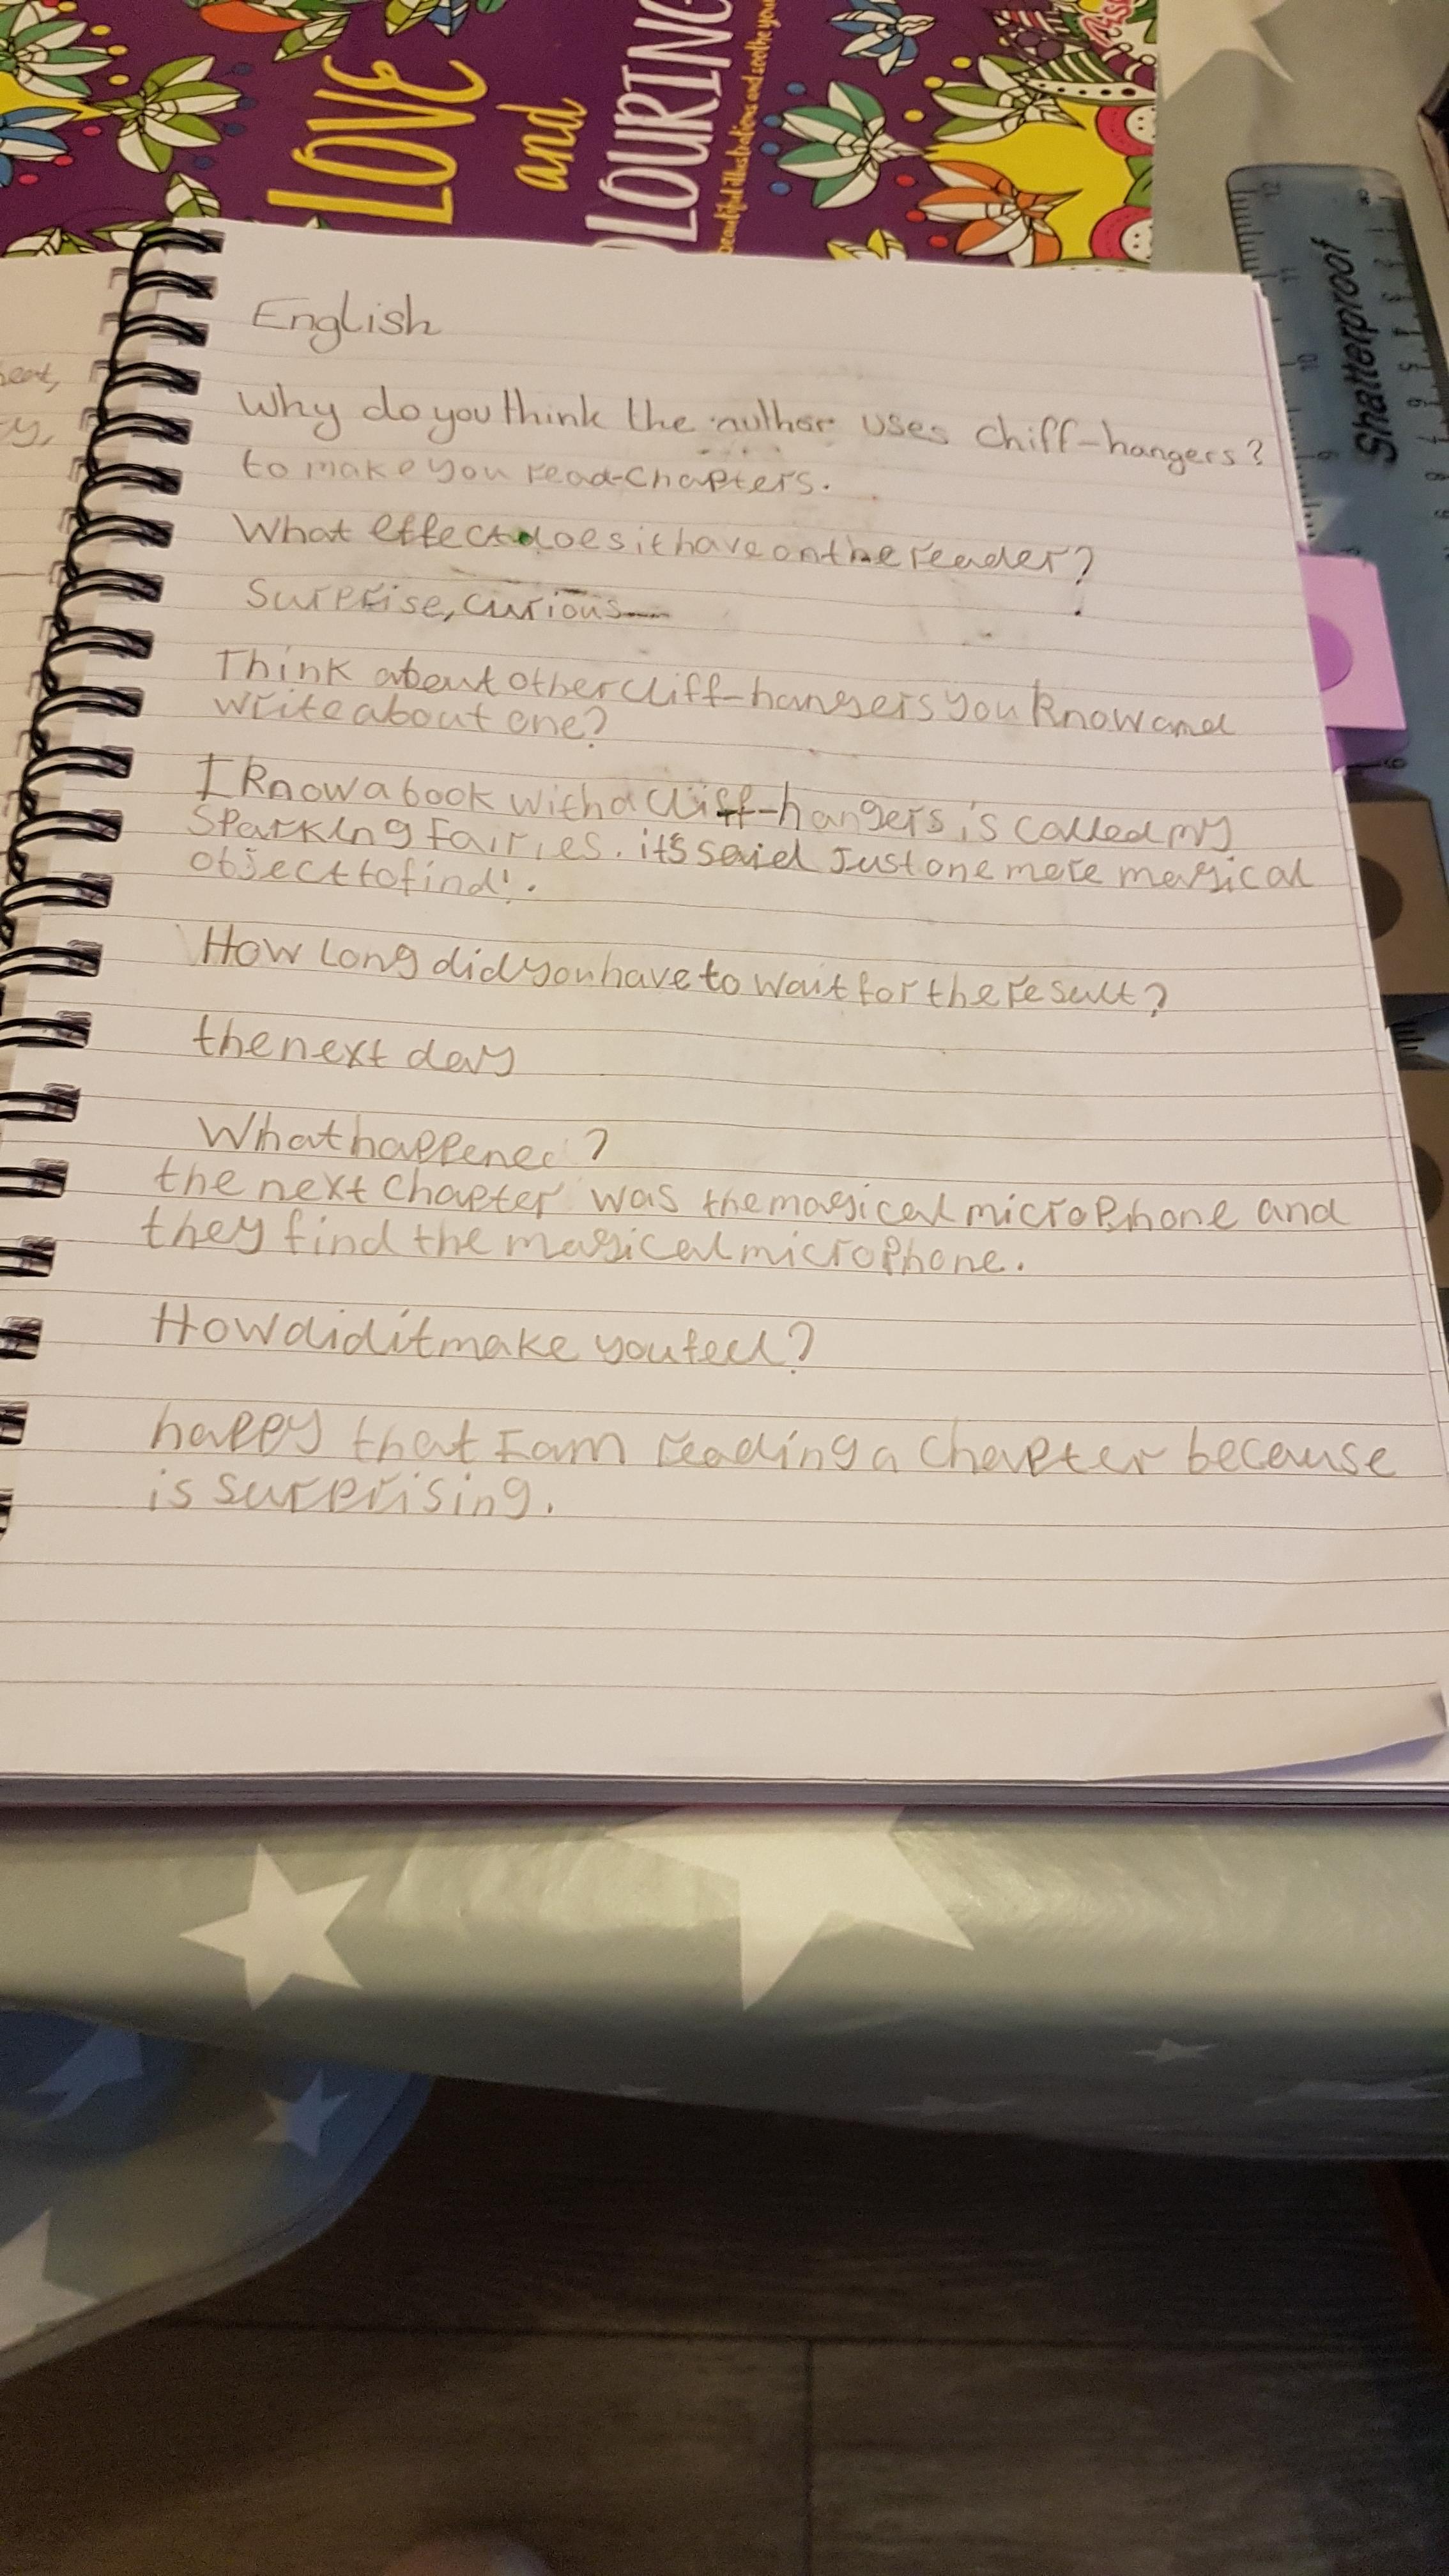 LOVE
and
LOURING
beautiful illustrations and soothe your
Shatterproof
12
11
10
9
English
Why do you think the author uses chiff-hangers?
to make you read chapters.
What effect does it have on the reader?
Surprise, curious
Think about other cliff-hangers you know and
write about one?
I know a book with a cliff-hangers is called my
Sparkling fairies. it's said Just one more magical
object to find!.
How long did you have to wait for the result?
the next day
What happened?
the next chapter was the magical microphone and
they find the magical microphone.
How did it make you feel?
happy that I am reading a chapter because
is surprising.